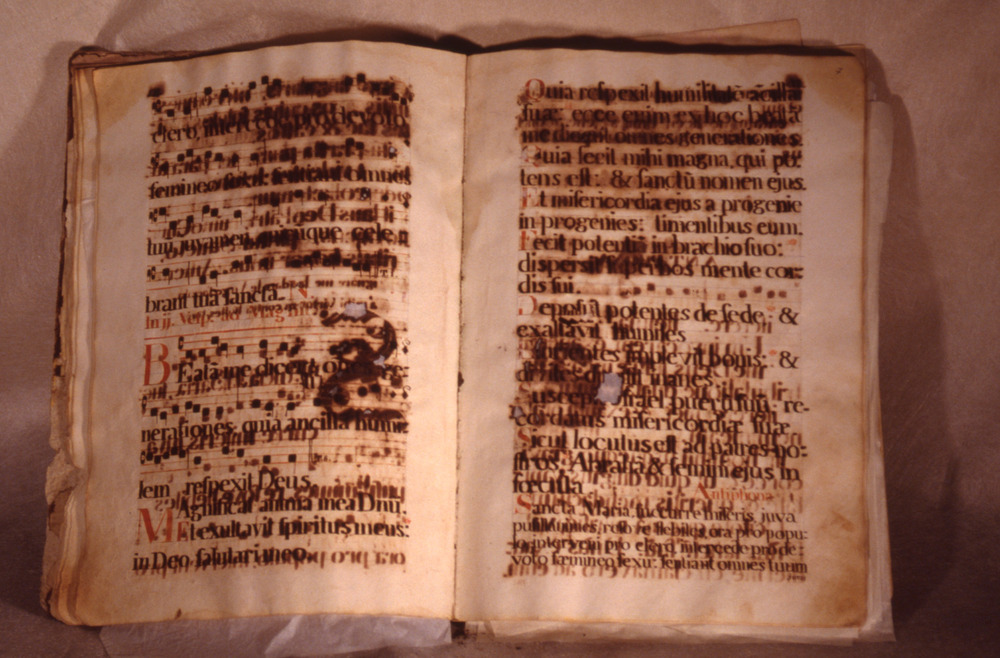 clero, intercede pro devoto
femineo sexu: sentiant omnes
tuū juvamen, quicūque cele-
brant tuā sanctā.
In ij. Vesp. ad Magnif.
BEatā me dicent omnes ge-
nerationes, quia ancillā humi-
lem respexit Deus.
Magnificat anima mea Dnū.
Et exultavit spiritus meus:
in Deo salutari meo.
Quia respexit humilitatē ācillæ
suæ: ecce enim ex hoc beatā
me dicent omnes generationes.
Quia fecit mihi magna, qui po-
tens est: & sanctū nomen ejus.
Et misericordia ejus a progenie
in progenies: timentibus eum.
Fecit potentiā in brachio suo:
dispersit superbos mente cor-
dis sui.
Deposuit potentes de sede: &
exaltavit humiles
Esurientes implevit bonis: &
divites dimisit inanes.
Suscepit Israel puerū suū: re-
cordatus misericordiæ suæ
Sicut locutus est ad patres no-
stros: Abrahā & semini ejus in
sæcula.
Antiphona
Sancta Maria, succurre miseris, juva
pusillanimes, refove flebiles, ora pro popu-
lo, interveni pro clero, intercede pro de-
voto fœmineo sexu: sentiant omnes tuum